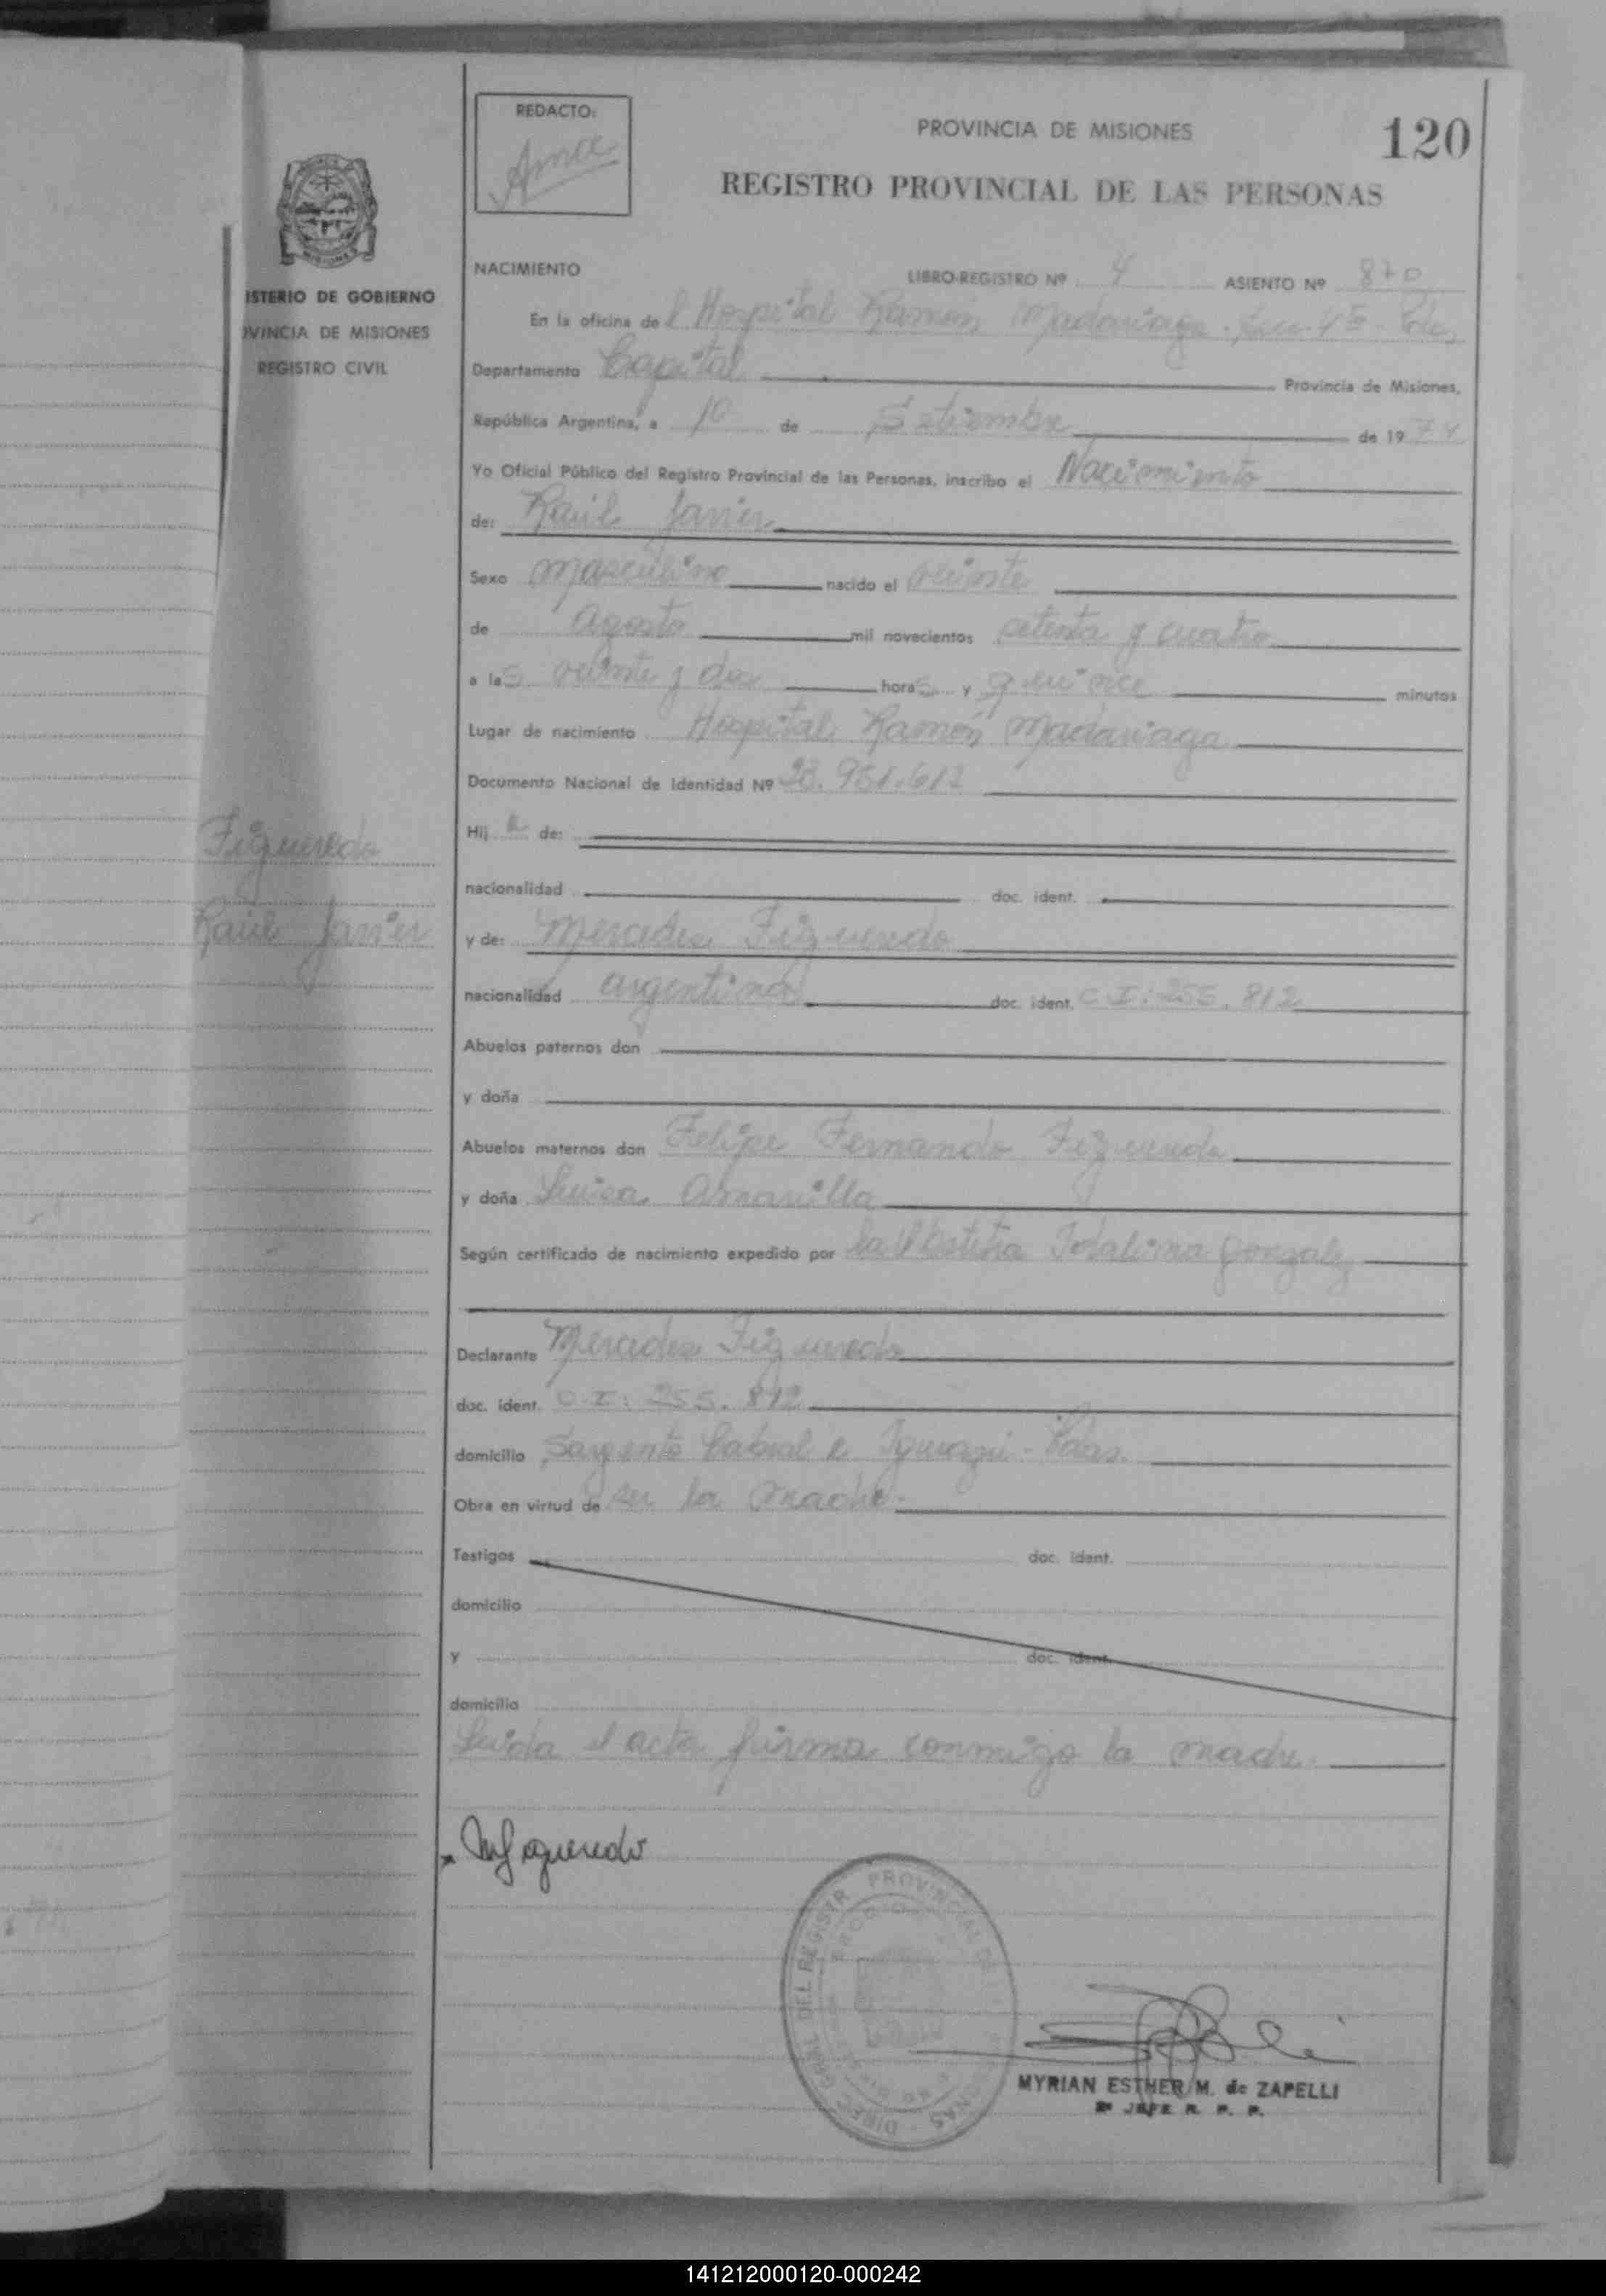 REDACTO:
PROVINCIA DE MISIONES
120
REGISTRO PROVINCIAL DE LAS PERSONAS
MISIONES
ISTERIO DE GOBIERNO
OVINCIA DE MISIONES
REGISTRO CIVIL
NACIMIENTO
LIBRO-REGISTRO Nº 4 ASIENTO Nº 870
En la oficina del Hospital Ramón Madariaga
Departamento Capital Provincia de Misiones,
República Argentina, a 10 de Setiembre de 1974
Yo Oficial Público del Registro Provincial de las Personas, inscribo el Nacimiento
de: Raúl Javier
Sexo masculino nacido el veinte
de agosto mil novecientos setenta y cuatro
a las veinte y dos horas y quince minutos
Lugar de nacimiento Hospital Ramón Madariaga
Documento Nacional de Identidad Nº 23.951.612
Figueredo
Raúl Javier
Hijo de:
nacionalidad doc. ident.
y de: Mercedes Figueredo
nacionalidad argentina doc. ident. C.I: 255.812
Abuelos paternos don
y doña
Abuelos maternos don Felipe Fernando Figueredo
y doña Luisa Amarilla
Según certificado de nacimiento expedido por la Obstetra Idalina Gonzalez
Declarante Mercedes Figueredo
doc. ident. C.I: 255.812
domicilio Sargento Cabral e Iguazú - Pdas.
Obra en virtud de ser la madre.
Testigos doc. ident.
domicilio
y doc. ident.
domicilio
Leida el acta firma conmigo la madre.
MFigueredo
DIREC. GRAL. DEL REGISTR. PROVINCIAL DE PERSONAS
MYRIAN ESTHER M. de ZAPELLI
2º JEFE R. P. P.
141212000120-000242